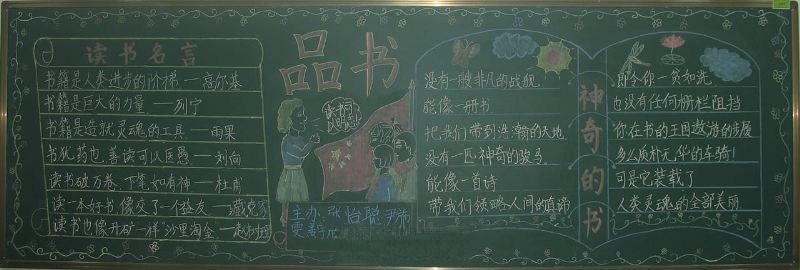 读书名言
书籍是人类进步的阶梯 — 高尔基
书籍是巨大的力量 — 列宁
书籍是造就灵魂的工具 — 雨果
书犹药也,善读可以医愚 — 刘向
读书破万卷,下笔如有神 — 杜甫
读一本好书 像交了一个益友 — 臧克家
读书也像开矿一样"沙里淘金" — 赵树理
品书
主办: 张怡聪
没有一艘非凡的战舰
能像一册书
把我们带到浩瀚的天地
没有一匹神奇的骏马
能像一首诗
带我们领略人间的真谛
神奇的书
即令你一贫如洗
也没有任何栅栏阻挡
你在书的王国遨游的步履
多么质朴无华的车骑!
可是它装载了
人类灵魂的全部美丽